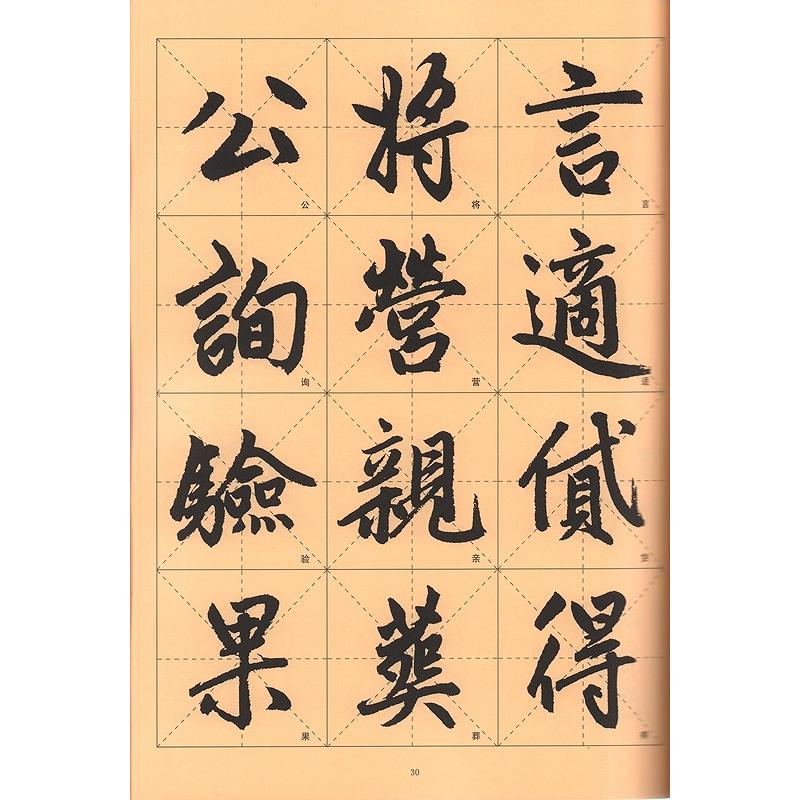 言適貸得
將營親葬
公詢驗果
言
将
营
亲
葬
公
询
验
果
30